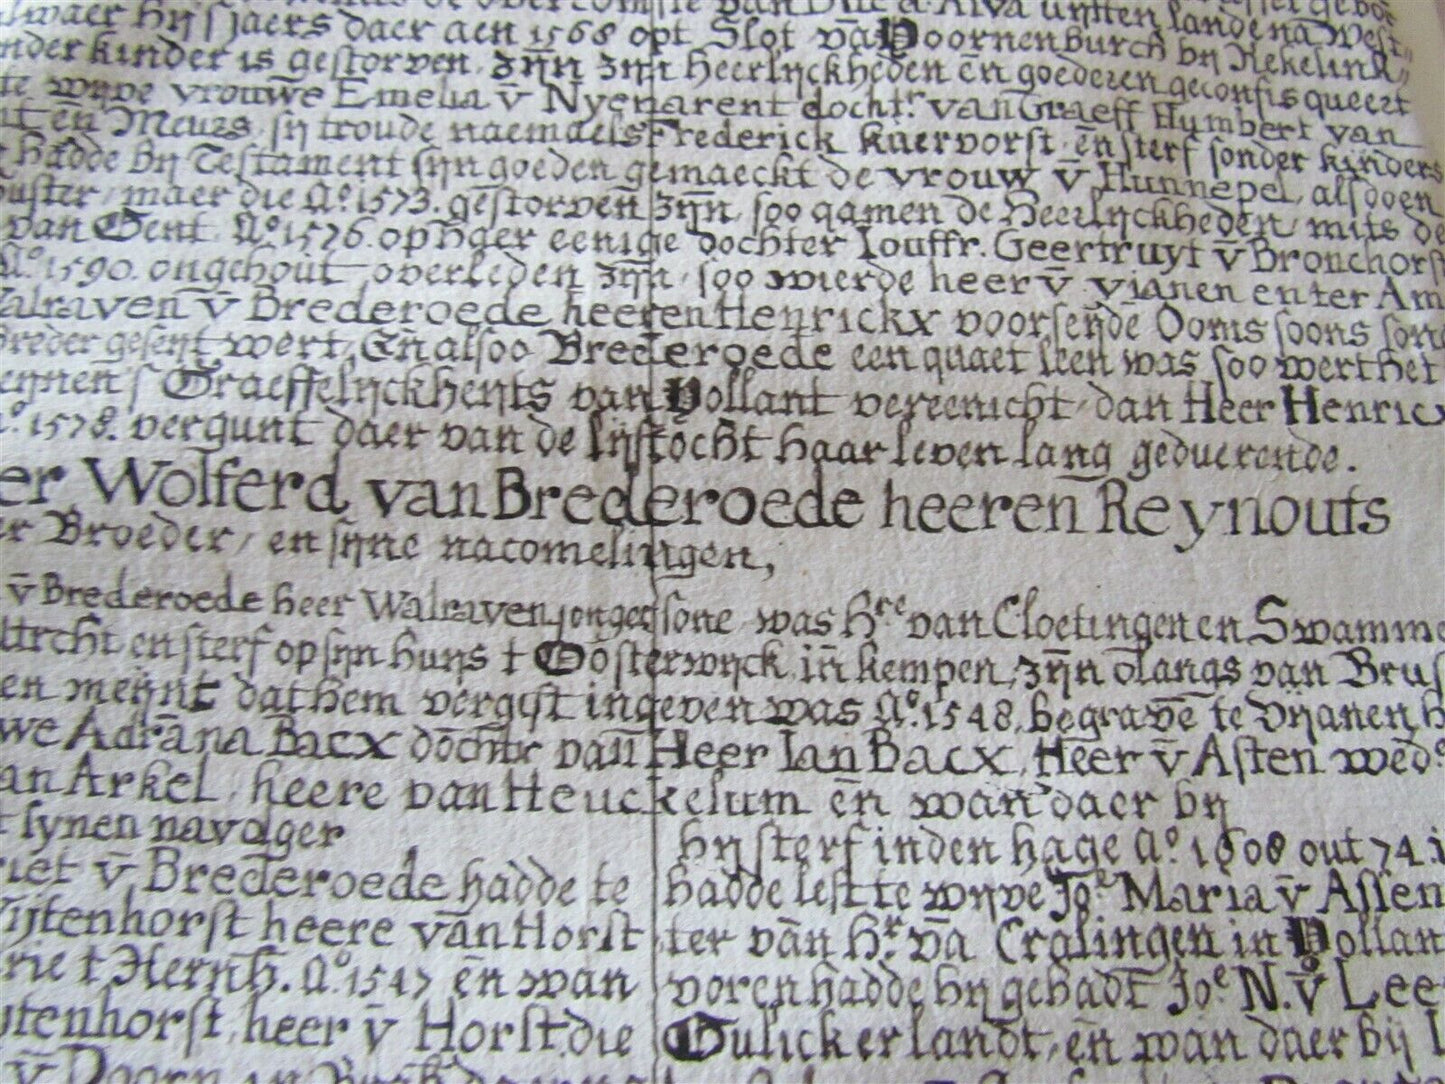 lwaer hij s'jaers daer aen 1568 opt Slot vā Hoornenburch bij Rekelink
nder kinder is gestorven, zijn zijn Heerlijckheden ēn goederen geconfisqueert
te wijve vrouwe Emelia v̄ Nyenarent docht.r van Graeff Humbert van
nt ēn Meurs, sij troude naemaels Frederick kuervorst, ēn sterf sonder kinders
t hadde bij Testament sijn goeden gemaeckt de vrouw v̄ Hunnepel, alsdoen
ouster, maer die A.o 1573. gestorven zijn, soo qamen de Heerlijckheden, mits de
van Gent. A.o 1576. op h̄ger eenige dochter Iouffr. Geertruyt v̄ Bronchorst
A.o 1590. ongehout overleden zijn, soo wierde heer v̄ vianen enter Am
alraven v̄ Brederoede heeren Henrickx voorseyde Ooms soons sone
breder geseijt wert, Ēn alsoo Brederoede een quaet leen was soo wert het
eijnen s' Graeffelijckheijts van Hollant vereenicht, dan Heer Henricx
A.o 1578. vergunt daer van de lijftocht haar leven lang geduerende.
er Wolferd van Brederoede heeren Reynouts
er Broeder, en sijne nacomelingen,
v̄ Brederoede heer Walraven jonger sone, was H.re van Cloetingen en Swamme
ltrcht, en sterf op sijn huijs t Oosterwijck, in kempen, zijn olangs van Brus
en meijnt dat hem vergift ingeven was A.o 1548, begravē te Vijanen, h
we Adrāna Bacx dochtr van Heer Ian Bacx, Heer v̄ Asten wed.e
an Arkel, heere van Heuckelum ēn wan daer bij
t synen navolger
hij sterf in den hage A.o 1608 out 74 i
riet v̄ Brederoede hadde te
hadde lest te wijve Jo.e Maria v̄ Assen
ijtenhorst heere vān Horst
ter vān H.r vā Cralingen in Hollan
rie t Hernh. A.o 1547 ēn wan
voren hadde hij gehadt Jo.e N. v̄ Lee
ijtenhorst, heer v̄ Horst, die
Gulickerlandt, ēn wan daer bij
v̄ Doorn in